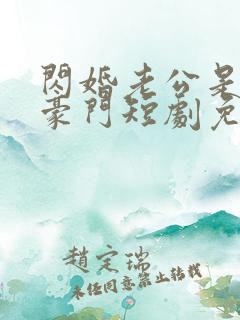 閃婚老公是
豪門短劇免
趙定瑞
未任同意禁止轉載